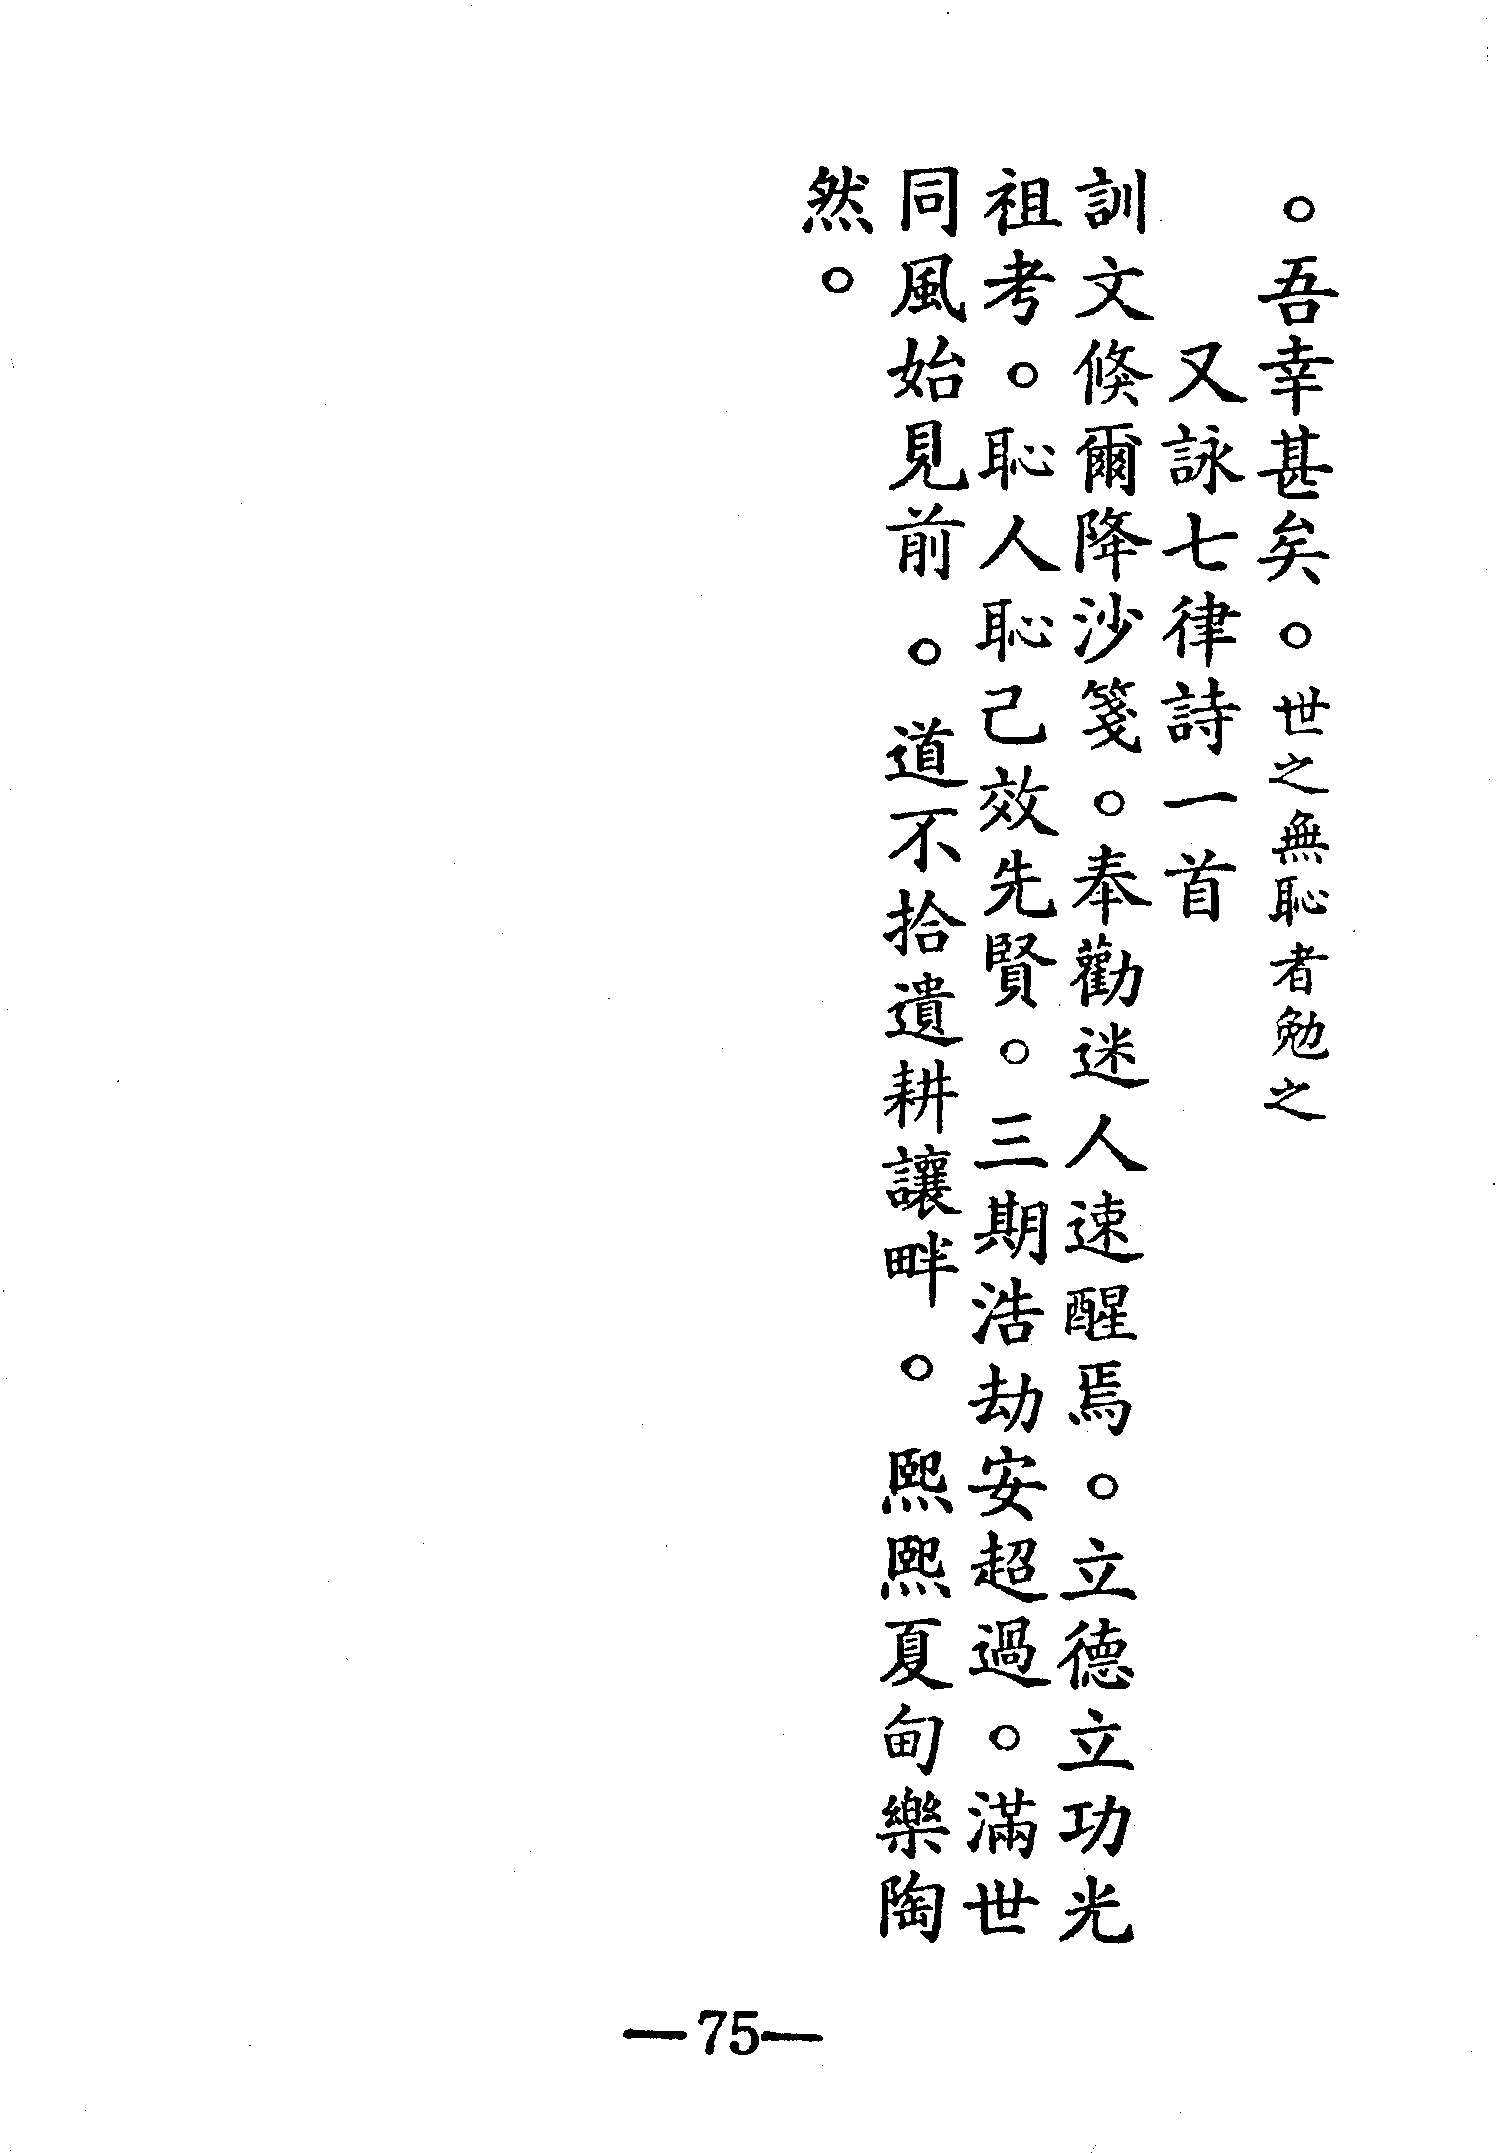 。吾幸甚矣。世之無恥者勉之
又詠七律詩一首
訓文倐爾降沙箋。奉勸迷人速醒焉。立德立功光
祖考。恥人恥己效先賢。三期浩劫安超過。滿世
同風始見前。道不拾遺耕讓畔。熙熙夏甸樂陶
然。
—75—